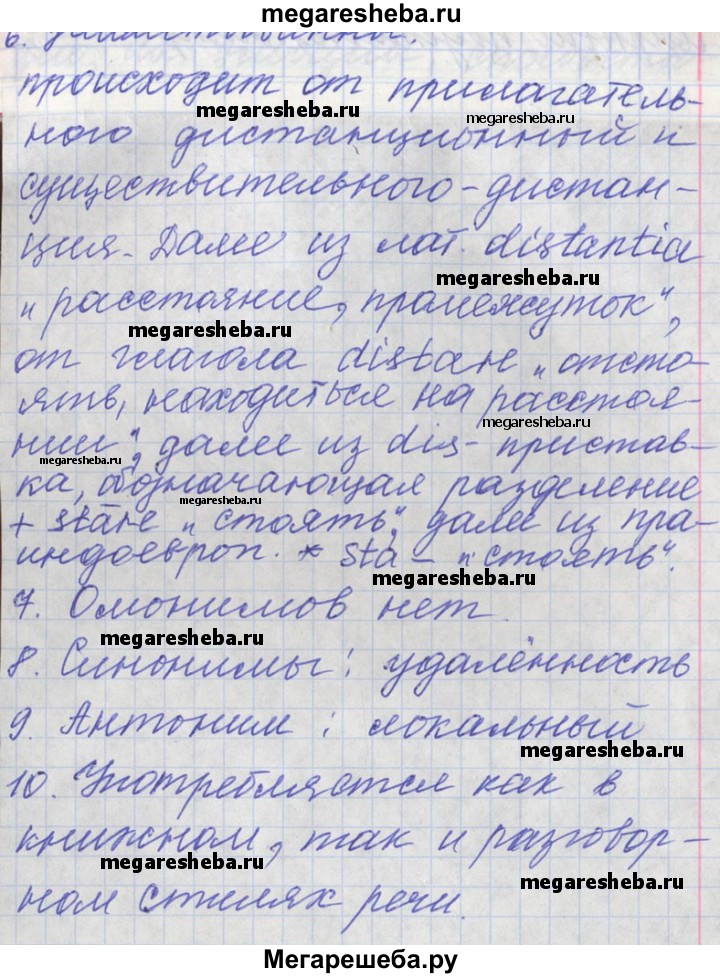 megaresheba.ru
6. Заимствованное.
происходит от прилагатель-
megaresheba.ru
megaresheba.ru
ного дистанционный и
существительного-дистан-
ция. Далее из лат. distantia
megaresheba.ru
"расстояние, промежуток",
megaresheba.ru
от глагола distare "отсто-
ять, находиться на расстоя-
megaresheba.ru
нии", далее из dis- пристав-
megaresheba.ru
ка, обозначающая разделение
megaresheba.ru
+ stāre "стоять", далее из пра-
индоевроп. * sta- "стоять".
megaresheba.ru
7. Омонимов нет.
megaresheba.ru
8. Синонимы: удалённость
9. Антоним: локальный
megaresheba.ru
10. Употребляется как в
книжном, так и разговор-
megaresheba.ru
megaresheba.ru
ном стилях речи.
Мегарешеба.ру